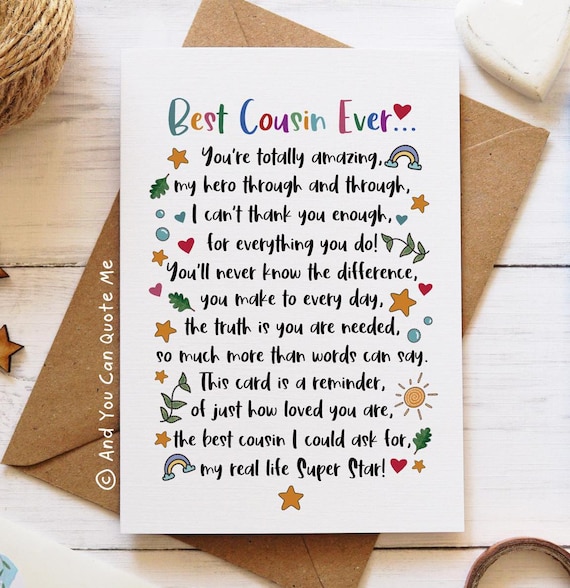 Best Cousin Ever...
You're totally amazing,
my hero through and through,
I can't thank you enough,
for everything you do!
You'll never know the difference,
you make to every day,
the truth is you are needed,
so much more than words can say.
This card is a reminder,
of just how loved you are,
the best cousin I could ask for,
my real life Super Star!
© And You Can Quote Me